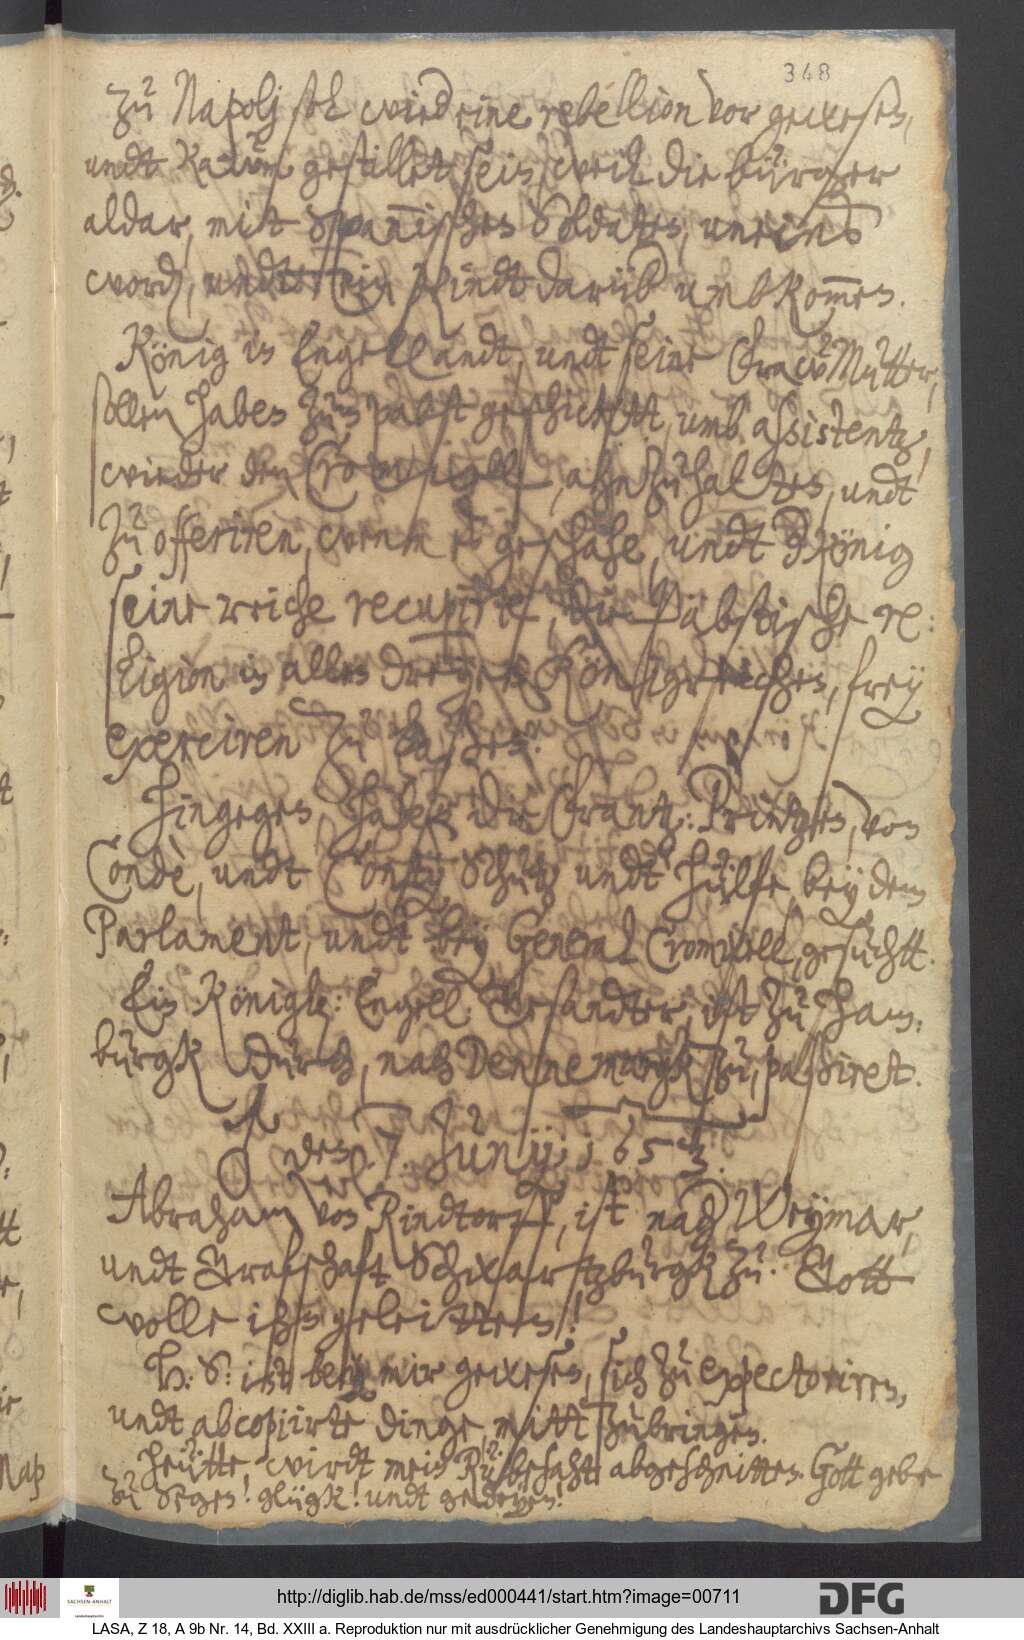 348
Zu Napolj sol wieder eine rebellion vor gewesen,
undt kaum gestillet sein, weil die bürger
aldar, mit Spanischen Soldaten, uneins
worden, undt ein kindt darüber umbkommen.
König in Engellandt, undt seine Fraw Mutter,
sollen haben zum pabst geschicktt, umb assistentz,
wieder den Cromwell, anzuhalten, undt
zu offeriren, wenn es geschähe, undt der König
seine reiche recuperirt, die Päbstische re-
ligion in allen dreyen Königreichen, frey
exerciren zu laßen.
Hingegen, haben die Frantz: Printzen, von
Condè, undt Conty Schutz undt hülfe, bey dem
Parlament, undt bey General Cromwell, gesuchtt.
Ein Königlicher: Engell: Gesandter, ist zu Ham-
burgk durch, nach Dennemargk zu, passirett.
den 7. Junij; 1653.
Abraham von Rindtorff, ist nach Weymar,
undt Grafschaft Schwartzburgk zu. Gott
wolle ihn geleitten!
H: S: ist bey mir gewesen, sich zu expectoriren,
undt abcopiirte dinge, mitt zubringen.
Heutte, wirdt mein Rübesaht abgeschnitten. Gott gebe
zu Segen! glügk! undt gedeyen!
http://diglib.hab.de/mss/ed000441/start.htm?image=00711
SACHSEN-ANHALT
DFG
LASA, Z 18, A 9b Nr. 14, Bd. XXIII a. Reproduktion nur mit ausdrücklicher Genehmigung des Landeshauptarchivs Sachsen-Anhalt